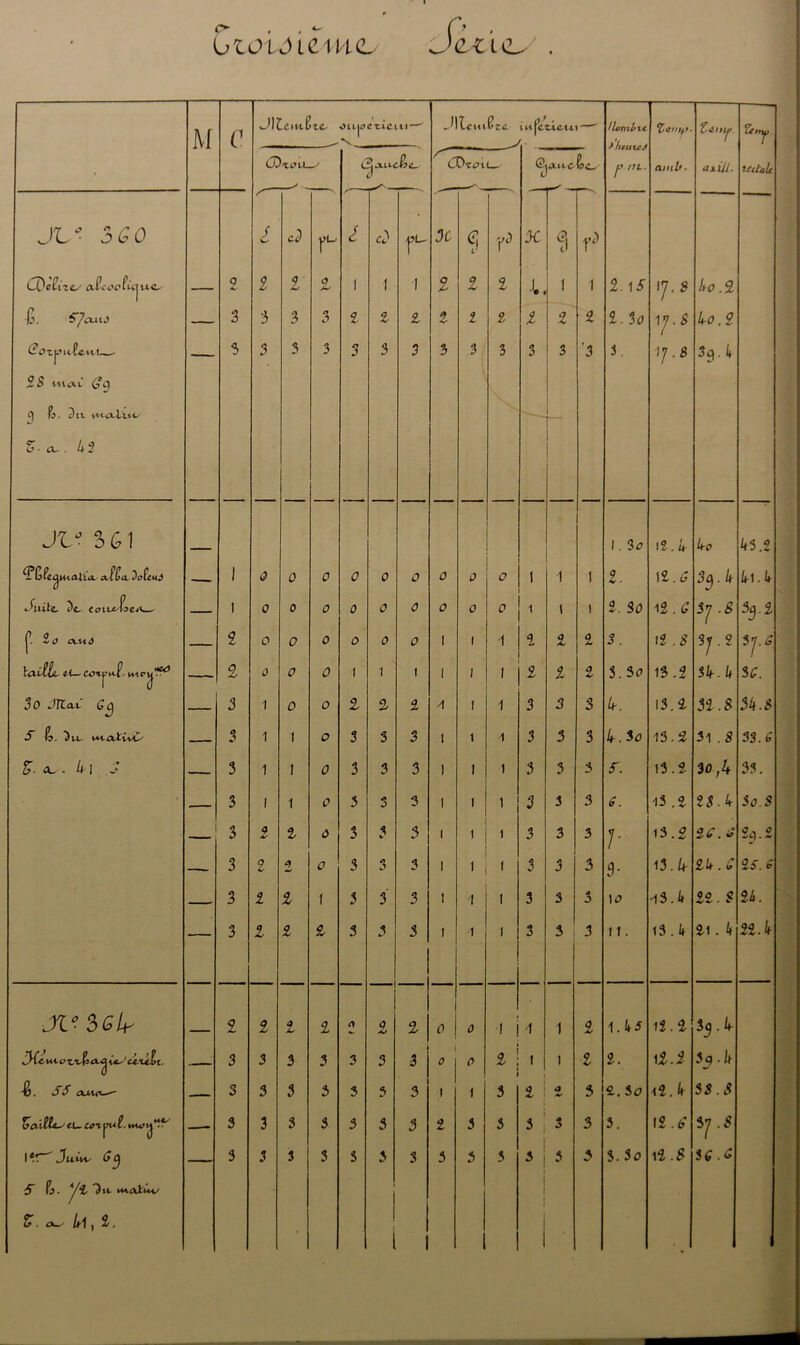 Troisième Série.
M C Membre supérieur Membre inférieur Nombre d'heures p m. Temp. amb. Temp. axill. Temp. rectale
Droit Gauche Droit Gauche
N° 360 é c p é c p
Délire alcoolique — 2 2 2 2 1 1 1 2 2 2 1 1 1 2.15 17.8 40.2
h. 57 ans — 3 3 3 3 2 2 2 2 2 2 2 2 2 2.30 17.8 40.2
Corpulent — 3 3 3 3 3 3 3 3 3 3 3 3 3 3. 17.8 39.4
28 mai 69
9 h. du matin
T. a. 42
N° 361 — 1.30 12.4 40 43.2
Phlegmatia alba dolens — 1 0 0 0 0 0 0 0 0 0 1 1 1 2. 12.6 39.4 41.4
Suite de couches — 1 0 0 0 0 0 0 0 0 0 1 1 1 2.30 12.6 37.8 39.2
f. 20 ans — 2 0 0 0 0 0 0 1 1 1 2 2 2 3. 12.8 37.2 37.6
taille et corpul. moy.nes — 2 0 0 0 1 1 1 1 1 1 2 2 2 3.30 13.2 34.4 36.
30 Mai 69 — 3 1 0 0 2 2 2 1 1 1 3 3 3 4. 13.2 32.8 34.8
5 h. du matin — 3 1 1 0 3 3 3 1 1 1 3 3 3 4.30 13.2 31.8 33.6
T. a. 41 5 — 3 1 1 0 3 3 3 1 1 1 3 3 3 5. 13.2 30,4 33.
— 3 1 1 0 3 3 3 1 1 1 3 3 3 6. 13.2 28.4 30.8
— 3 2 2 0 3 3 3 1 1 1 3 3 3 7. 13.2 26.6 29.2
— 3 2 2 0 3 3 3 1 1 1 3 3 3 9. 13.4 24.6 25.6
— 3 2 2 1 3 3 3 1 1 1 3 3 3 10 13.4 22.8 24.
— 3 2 2 2 3 3 3 1 1 1 3 3 3 11. 13.4 21.4 22.4
N° 364 — 2 2 2 2 2 2 2 0 0 1 1 1 2 1.45 12.2 39.4
Hémorrhagie cérébr. — 3 3 3 3 3 3 3 0 0 2 1 1 2 2. 12.2 39.4
h. 55 ans — 3 3 3 3 3 3 3 1 1 3 2 2 3 2.30 12.4 38.8
Taille et corpul. moy.nes — 3 3 3 3 3 3 3 2 3 3 3 3 3 3. 12.6 37.8
1er Juin 69 — 3 3 3 3 3 3 3 3 3 3 3 3 3 3.30 12.8 36.6
5 h. 1/2 du matin
T. a. 41, 2.